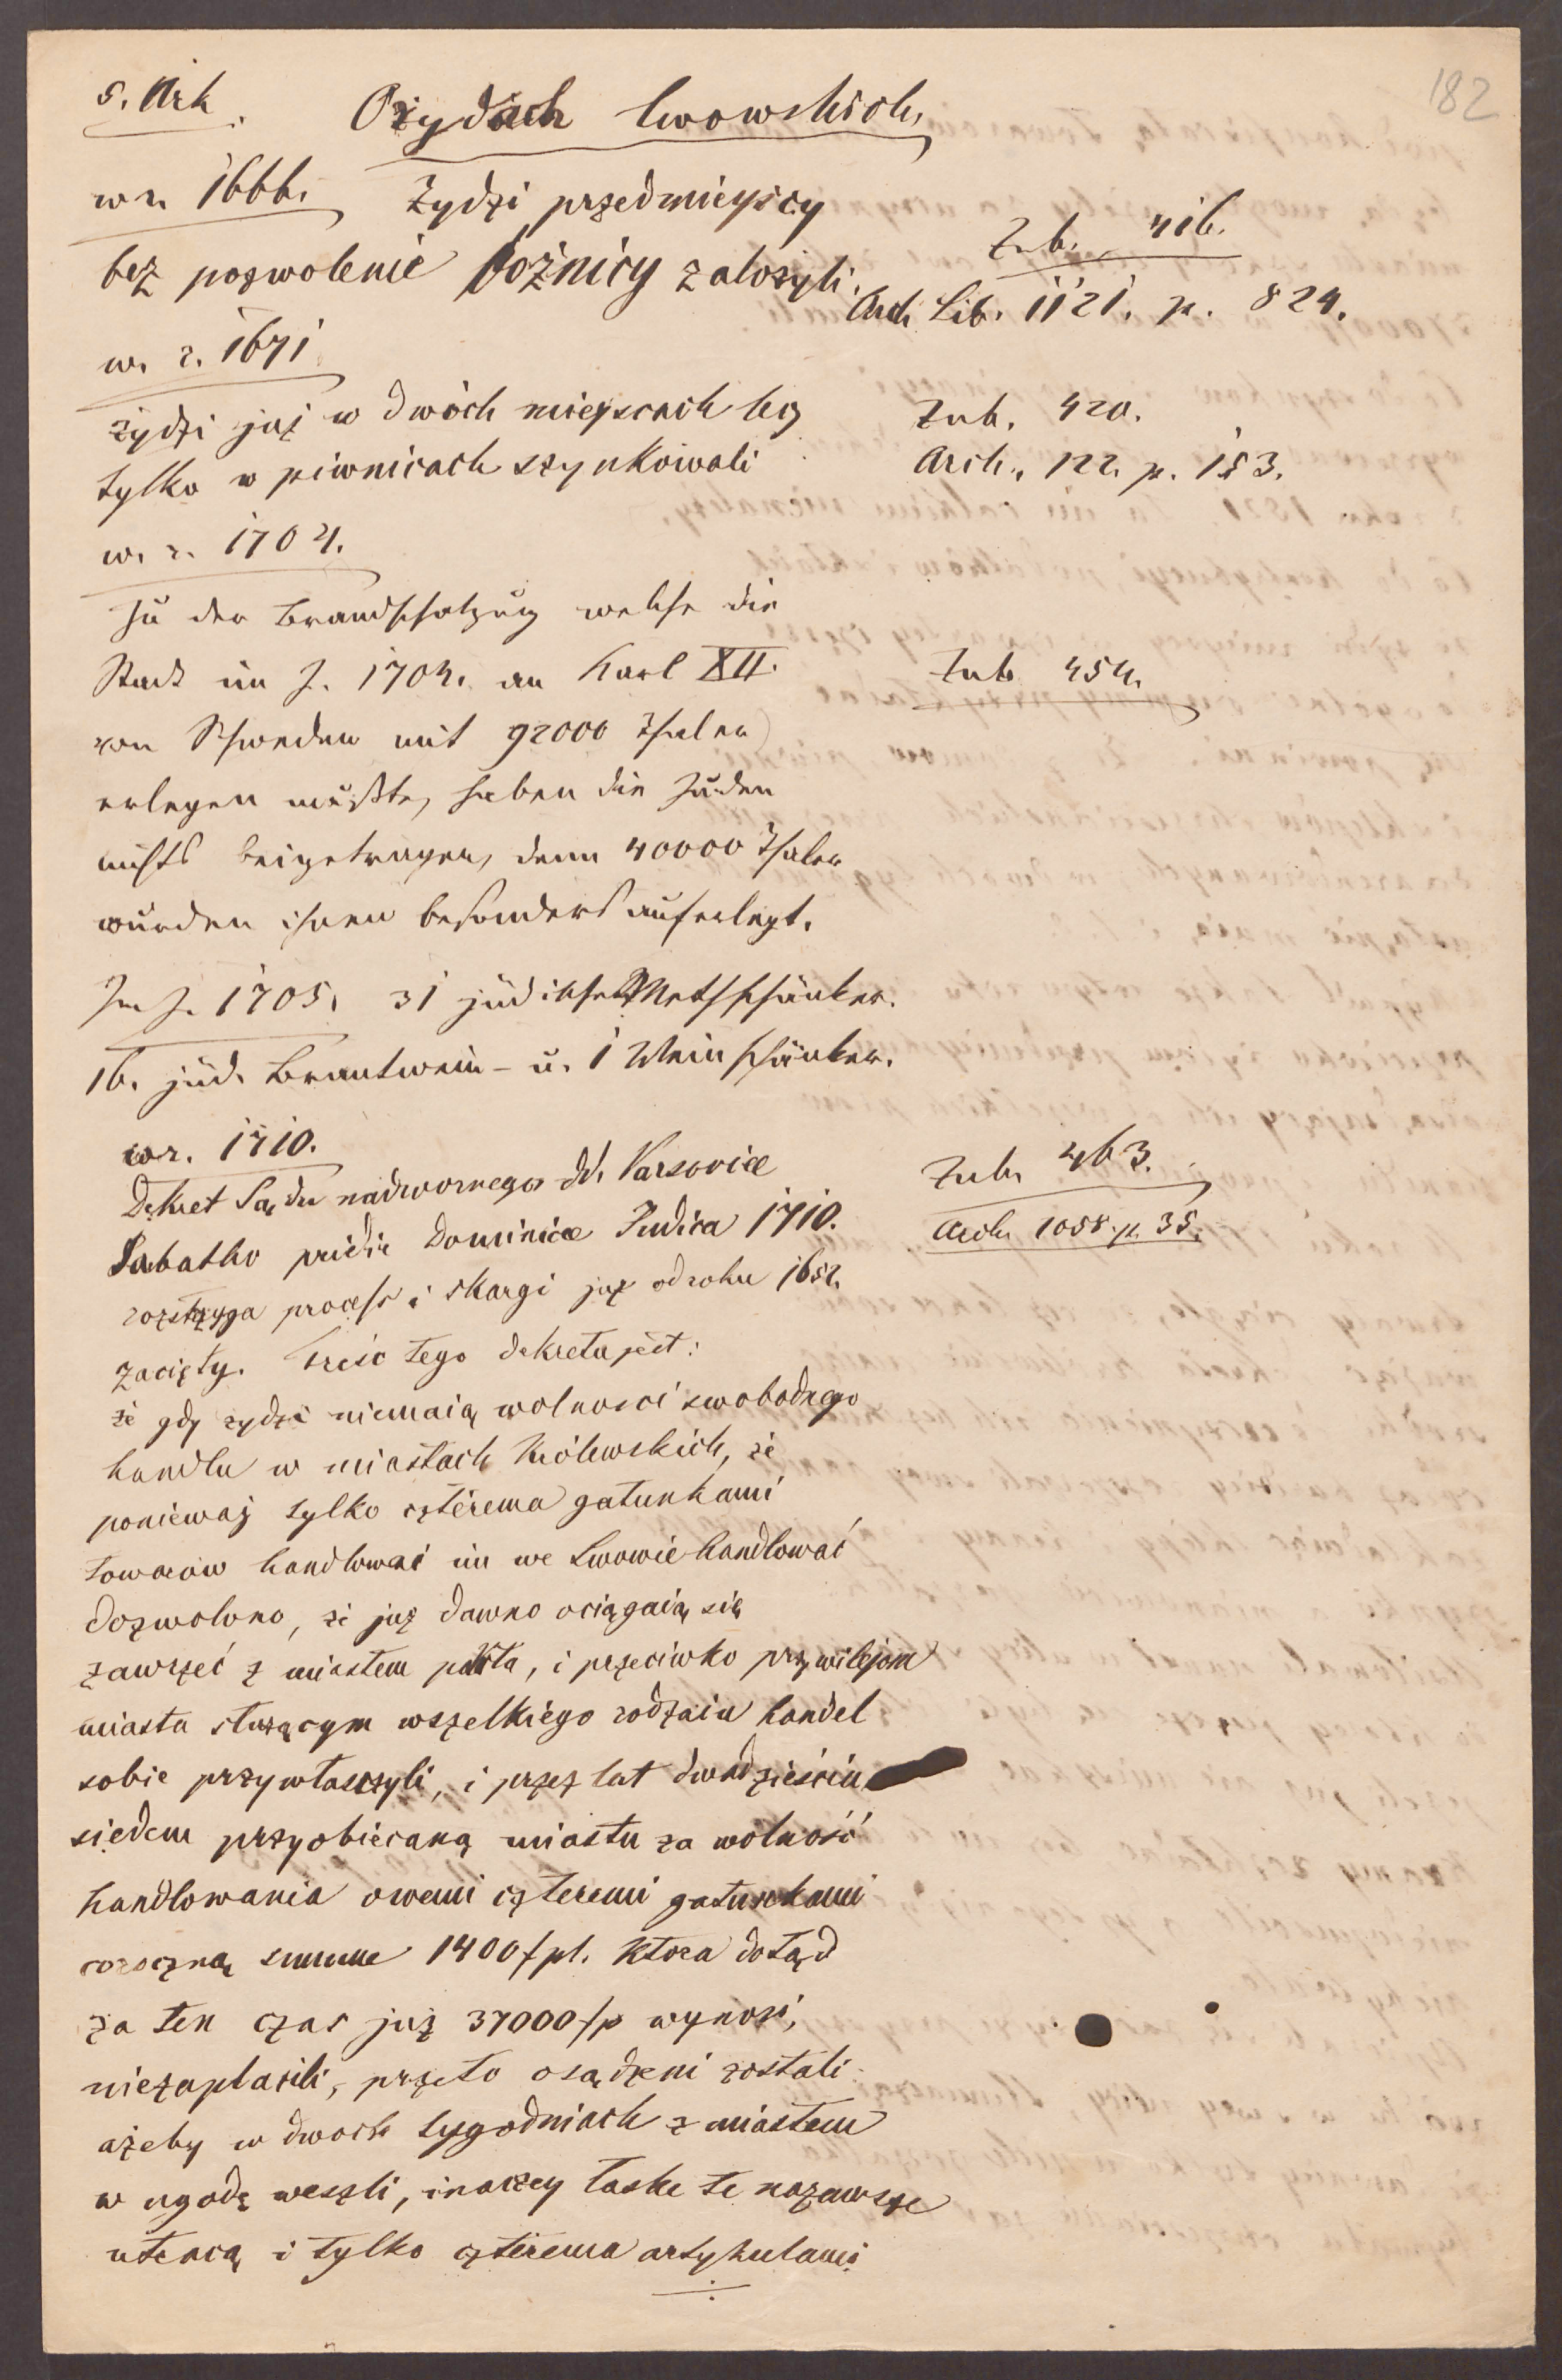 5. Ark.
O żydach lwowskich,
182
w r. 1666. Żydzi przedmieyscy
bez pozwolenie bożnicy założyli.
Zub. 416.
Arch Lib. 1121. p. 824.
w. r. 1671
żydzi już w dwóch mieyscach
tylko w piwnicach szynkowali
Zub. 420.
Arch. 122. p. 153.
w. r. 1704.
Zu der Brandschatzung welche die
Stadt im J. 1704. an Karl XII.
von Schweden mit 92000 Thaler
erlegen mußte, haben die Juden
nichts beigetragen, denn 40000 Thaler
wurden ihnen besonders auferlegt.
Zub 454.
Im J. 1705. 31 jüdische Methschänker.
16. jüd. Brantwein- u. 1 Weinschänker.
w r. 1710.
Dekret Sądu nadwornego dd. Varsoviæ
Sabatho pridie Dominicæ Judica 1710.
rozstrzyga process i skargi już od roku 1652.
zacięty. Treść tego dekretu jest:
Zub. 463.
Arch. 1058. p. 35.
że gdy żydzi niemaią wolnosci swobodnego
handlu w miastach Królewskich, że
ponieważ tylko czterema gatunkami
towarów handlować im we Lwowie handlować
dozwolono, że już dawno ociągaią się
zawrzeć z miastem pakta, i przeciwko przywilejom
miasta służącym wszelkiego rodzaiu handel
sobie przywłaszczyli, i przez lat dwadzieścia
siedem przyobiecaną miastu za wolność
handlowania owemi czteremi gatunkami
coroczną summe 1400 fpl. Ktora dotąd
za ten czas już 37000 fp wynosi,
niezapłacili, przeto osądzeni zostali
ażeby w dwoch tygodniach z miastem
w ugodę weszli, inaczey łaske te nazawsze
utracą i tylko czterema artykulami